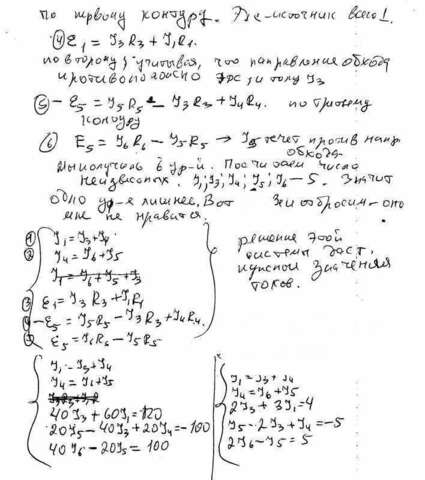 По первому контуру. Где - источник всего 1.
④ Ɛ₁ = У₃R₃ + У₁R₁.
по второму, учитывая, что направление обхода
противоположно ЭДС, и току У₃
⑤ - Ɛ₅ = У₅R₅ - У₃R₃ + У₄R₄. по третьему
контуру
⑥ Ɛ₅ = У₆R₆ - У₅R₅ → У₅ течет против напр
обхода.
Мы получили 6 ур-й. Посчитаем число
неизвестных. У₁; У₃; У₄; У₅; У₆ - 5. Значит
одно ур-е лишнее. Вот отбросим - оно
мне не нравится.
① У₁ = У₃ + У₄
② У₄ = У₆ + У₅
У₁ = У₆ + У₅ + У₃
③ Ɛ₁ = У₃R₃ + У₁R₁
④ - Ɛ₅ = У₅R₅ - У₃R₃ + У₄R₄.
⑤ Ɛ₅ = У₆R₆ - У₅R₅
решение этой
системы даст
значения
токов.
У₁ = У₃ + У₄
У₄ = У₆ + У₅
40У₃ + 60У₁ = 120
20У₅ - 40У₃ + 20У₄ = -100
40У₆ - 20У₅ = 100
У₁ = У₃ + У₄
У₄ = У₆ + У₅
2У₃ + 3У₁ = 4
У₅ - 2У₃ + У₄ = -5
2У₆ - У₅ = 5